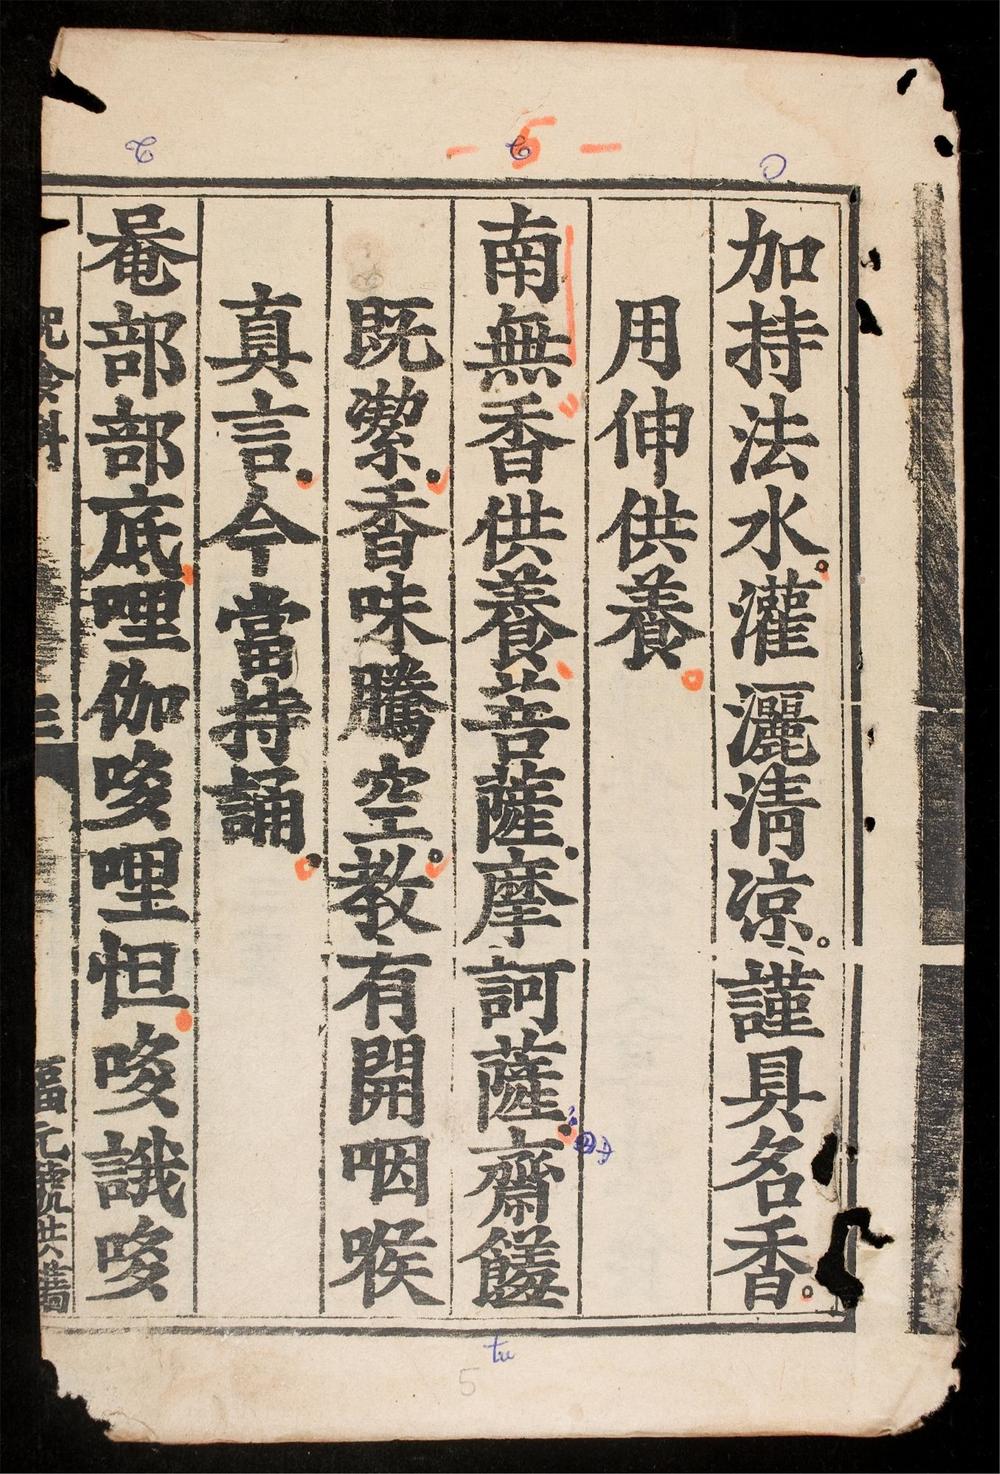 - 5 -
加持法水灌灑清凉謹具名香
用伸供養
南無香供養菩薩摩訶薩齋饈
既潔香味騰空教有開咽喉
真言今當持誦
唵部部底哩伽哆哩怛哆誐哆
三
福元號
tu
5